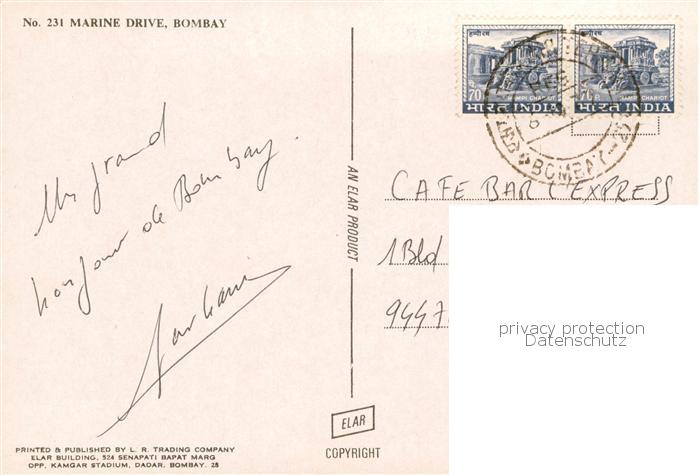 No. 231 MARINE DRIVE, BOMBAY
हम्पी रथ
हम्पी रथ
70 P.
HAMPI CHARIOT
भारत INDIA
70 P.
HAMPI CHARIOT
भारत INDIA
BOMBAY
Un grand
bonjour de Bombay.
AN ELAR PRODUCT
CAFE BAR L'EXPRESS
1 Bld
9447
privacy protection
Datenschutz
ELAR
COPYRIGHT
PRINTED & PUBLISHED BY L. R. TRADING COMPANY
ELAR BUILDING, 524 SENAPATI BAPAT MARG
OPP. KAMGAR STADIUM, DADAR, BOMBAY. 28